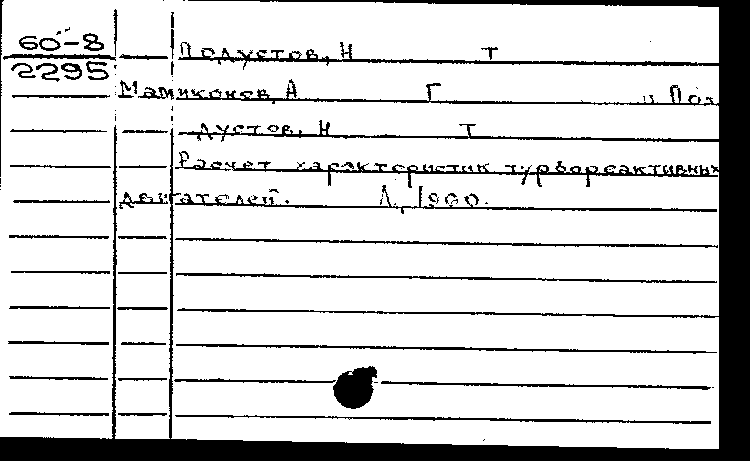 60-8
2295
Подустов, Н Т
Мамиконов, А Г и По-
дустов, Н Т
Расчет характеристик турбореактивных
двигателей. Л, 1960.